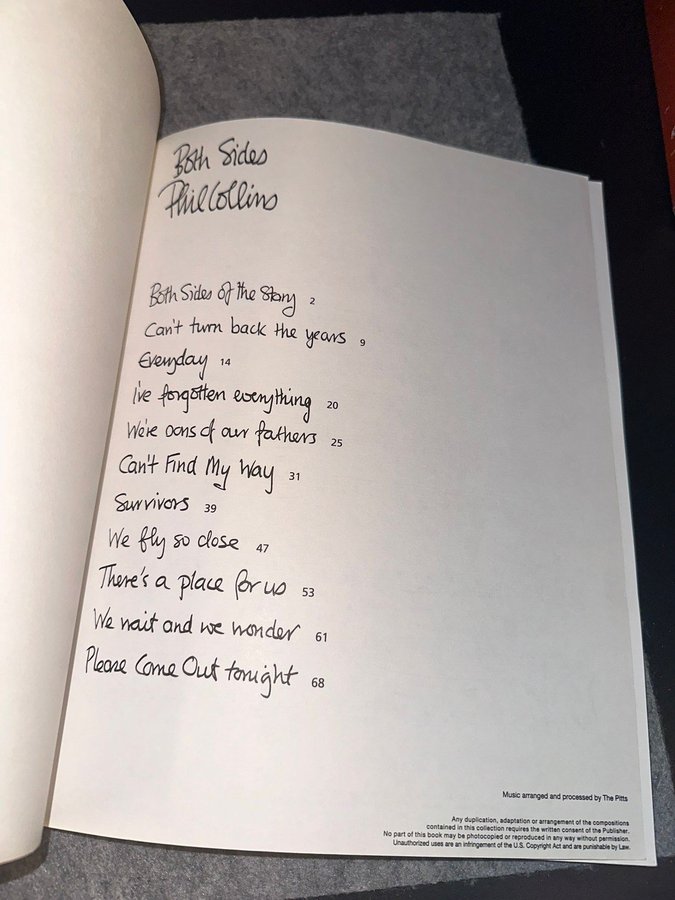 Both Sides
Phil Collins
Both Sides of the Story 2
Can't turn back the years 9
Everyday 14
I've forgotten everything 20
We're sons of our fathers 25
Can't Find My Way 31
Survivors 39
We fly so close 47
There's a place for us 53
We wait and we wonder 61
Please Come Out tonight 68
Music arranged and processed by The Pitts
Any duplication, adaptation or arrangement of the compositions
contained in this collection requires the written consent of the Publisher.
No part of this book may be photocopied or reproduced in any way without permission.
Unauthorized uses are an infringement of the U.S. Copyright Act and are punishable by Law.